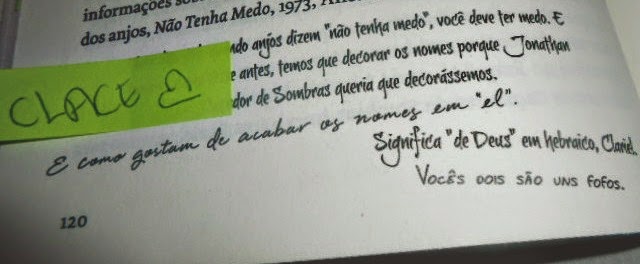 informações
dos anjos, Não Tenha Medo, 1973,
ndo anjos dizem "não tenha medo", você deve ter medo. E
e antes, temos que decorar os nomes porque Jonathan
CLACE
dor de Sombras queria que decorássemos.
E como gostam de acabar os nomes em "el".
Significa "de Deus" em hebraico, Clariel.
Vocês dois são uns fofos.
120